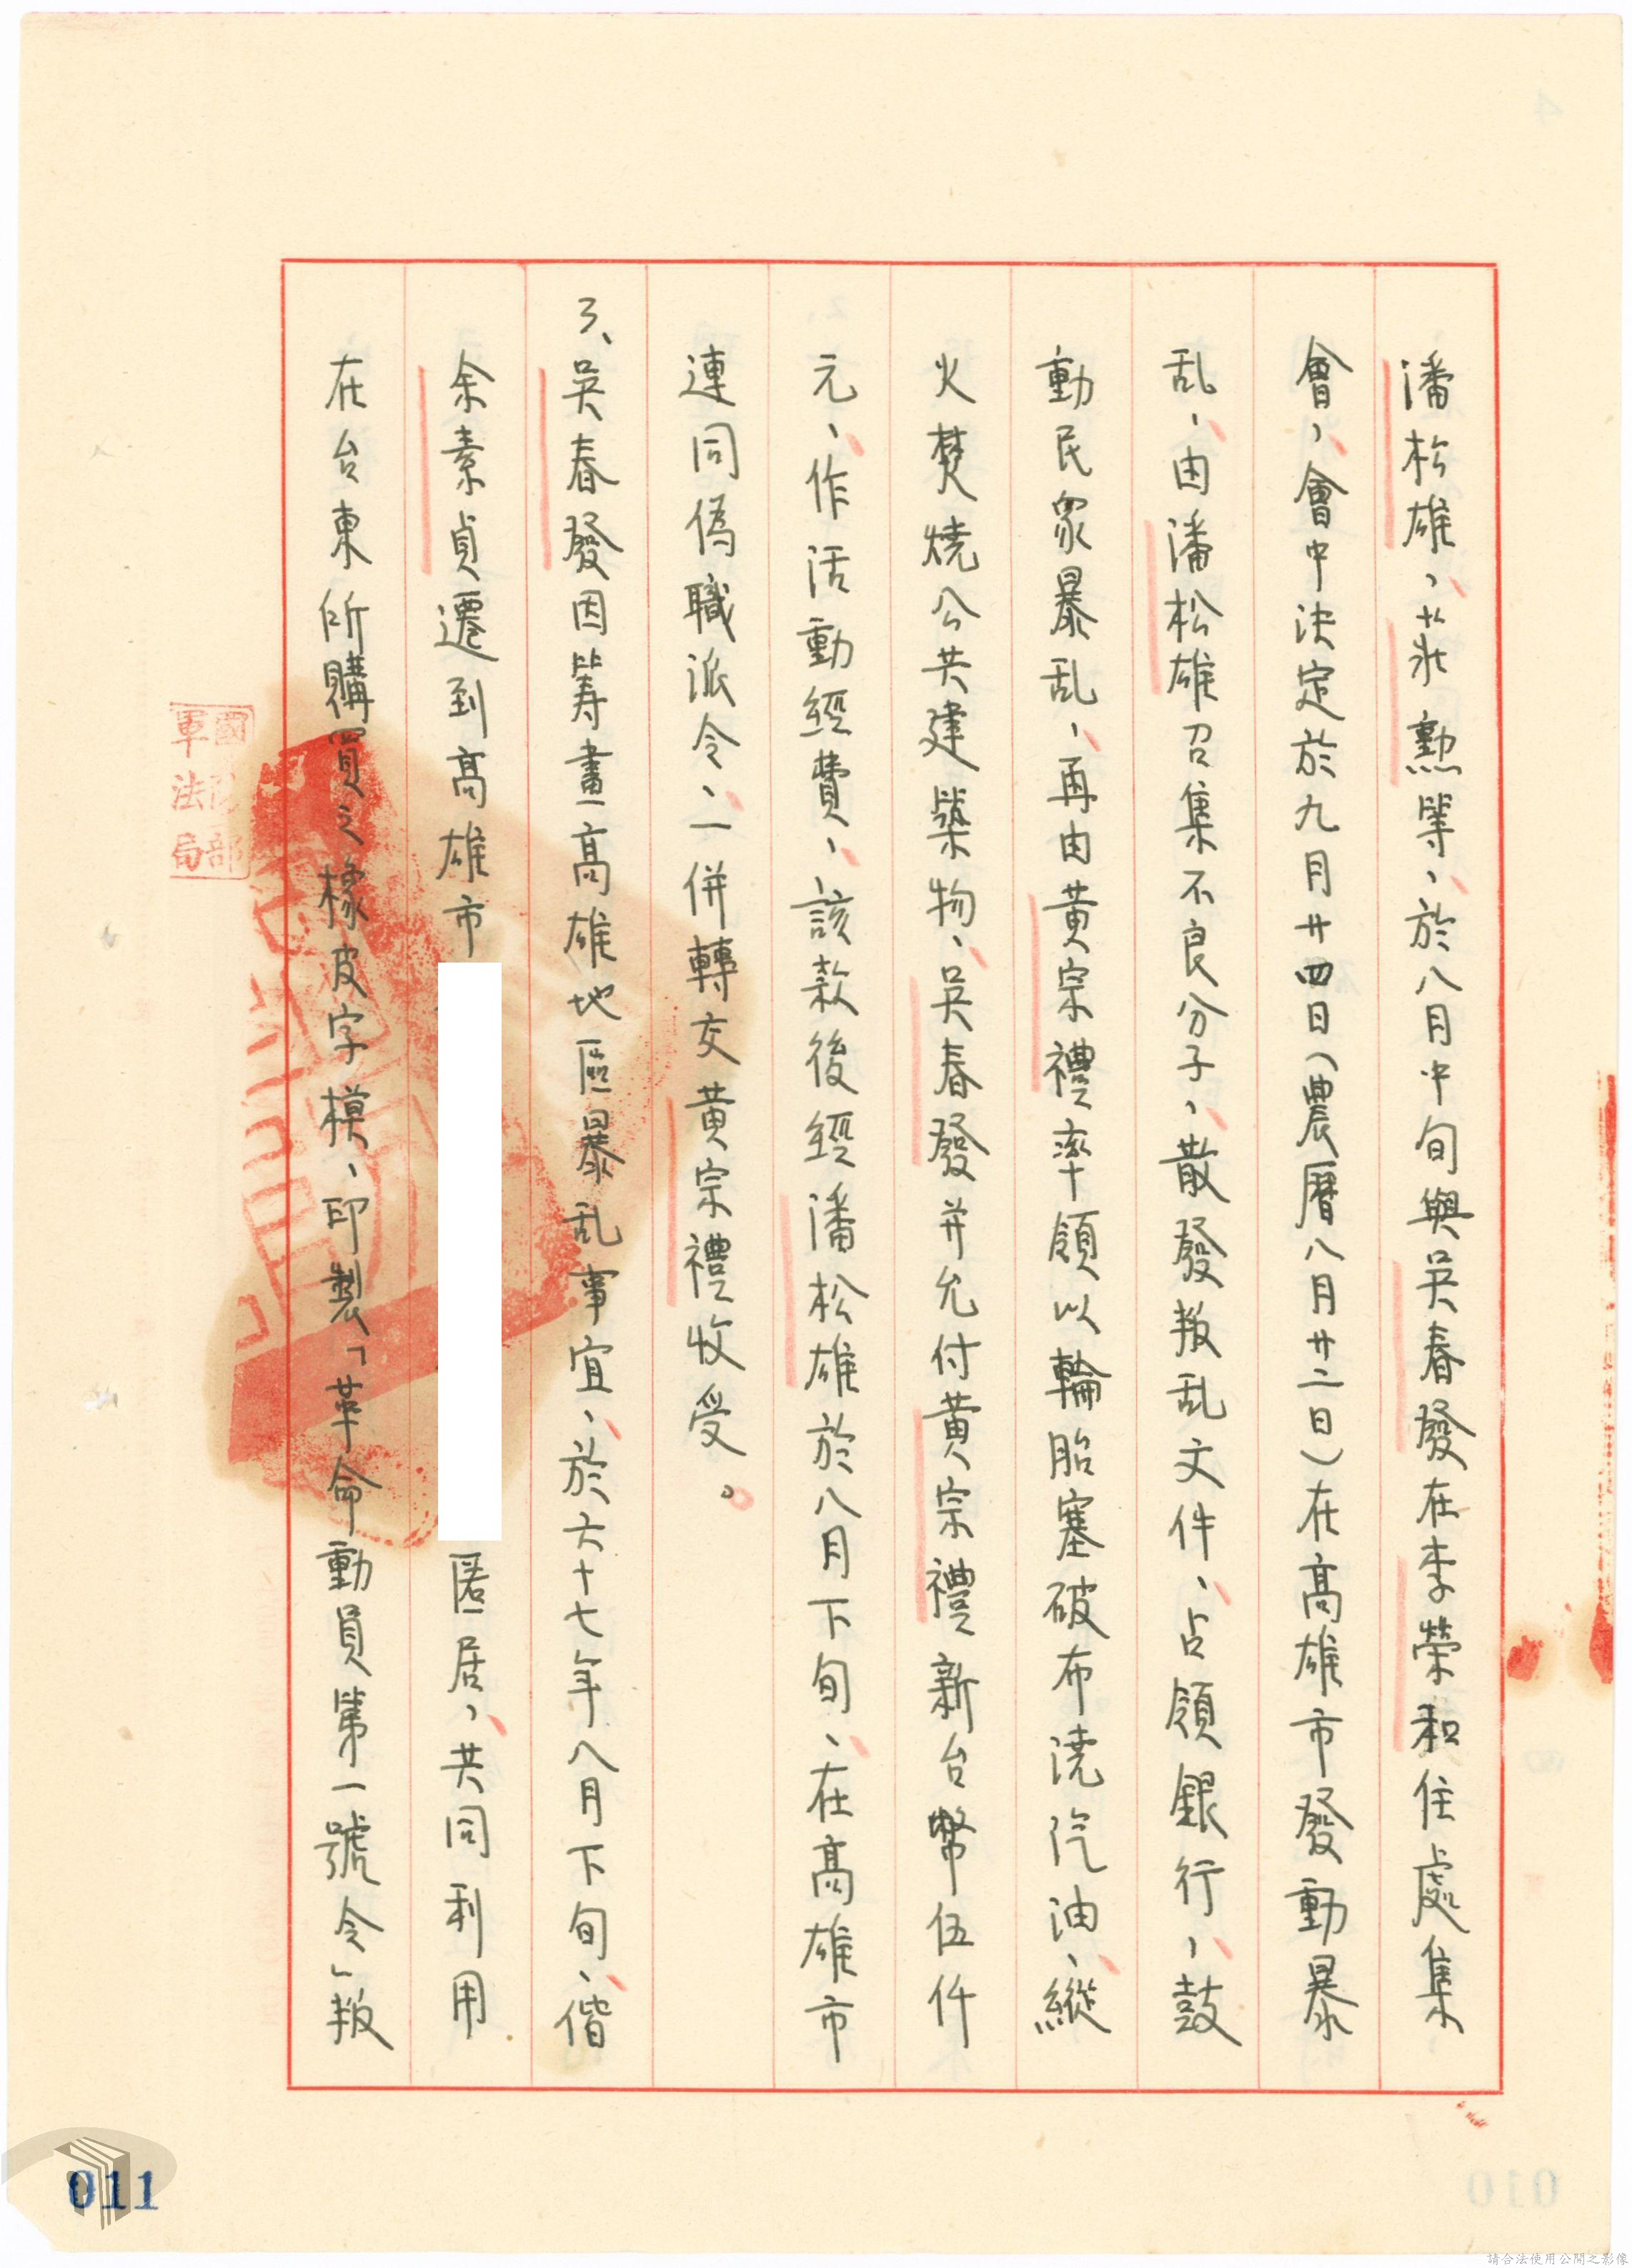 潘松雄，莊勲等，於八月中旬與吳春發在李榮和住處集
會，會中決定於九月廿四日（農曆八月廿二日）在高雄市發動暴
乱，由潘松雄召集不良分子，散發叛乱文件，占領銀行，鼓
動民眾暴乱，再由黃宗禮率領以輪胎塞破布澆汽油，縱
火焚燒公共建築物，吳春發并允付黃宗禮新台幣伍仟
元，作活動經費，該款後經潘松雄於八月下旬，在高雄市
連同偽職派令，一併轉交黃宗禮收受。
3、吳春發因籌畫高雄地區暴乱事宜，於六十七年八月下旬，偕
余素貞遷到高雄市
匿居，共同利用
在台東所購買之橡皮字模，印製「革命動員第一號令」叛
國防部
軍法局
011
010
4
請合法使用公開之影像